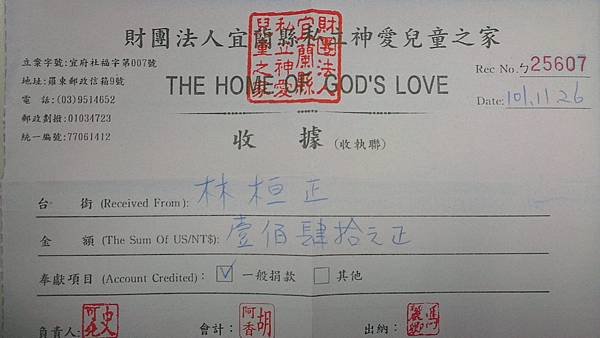 財團法人宜蘭縣私立神愛兒童之家
立案字號:宜府社福字第007號
地址:羅東郵政信箱9號
電 話:(03)9514652
郵政劃撥:01034723
統一編號:77061412
THE HOME OF GOD'S LOVE
財團法人宜蘭縣私立神愛兒童之家
Rec No.ㄅ25607
Date: 101.11.26
收 據 (收執聯)
台 銜 (Received From): 林桓正
金 額 (The Sum Of US/NT$): 壹佰肆拾元正
奉獻項目 (Account Credited): ☑ 一般捐款 ☐ 其他
負責人:
會計: 胡阿香
出納: